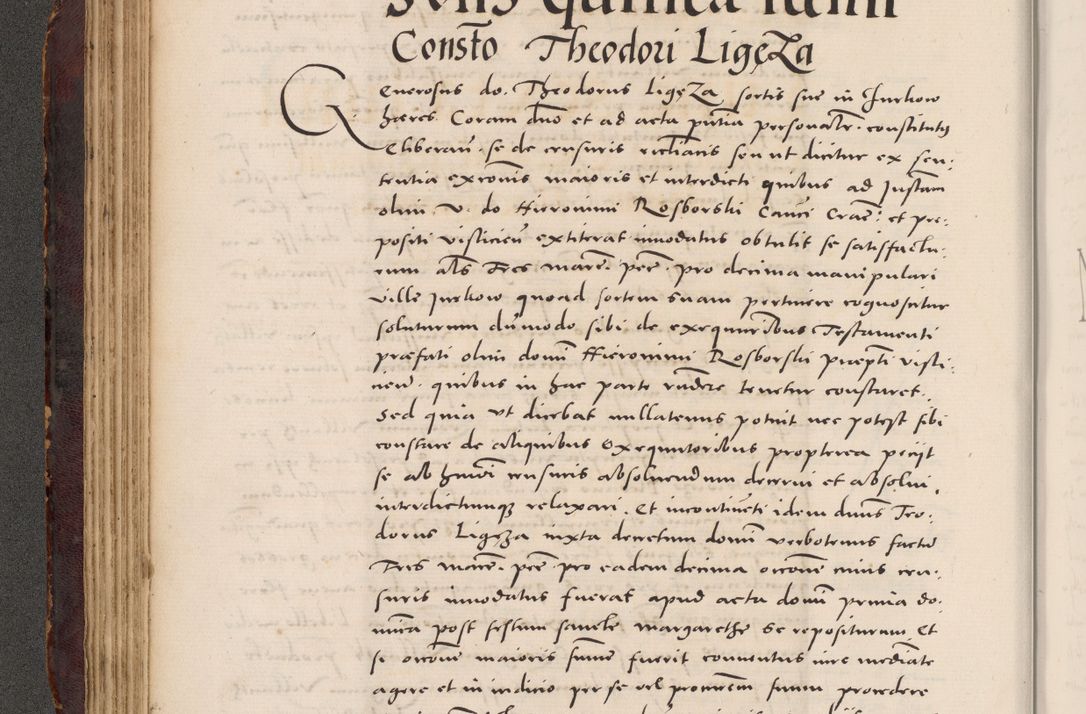 Consto Theodori Ligęza
Generosus do. Theodorus Ligęza sortis sue in Jurkow
hæres Coram dno et ad acta pntia personalr. constitutq
Eliberan. se de censuris ecclīacis seu ut dicitur ex sen-
tentia excōnis maioris et interdicti quibus ad Instām
olim. v. do Hieronimi Rosborski Canci Crac: et pre-
positi visliciēn extiterat innodatus obtulit se satisfactu-
rum als Tres marc. pec. pro decima manipulari
ville Jurkow quoad sortem suam pertinere cognoscitur
soluturum dūmodo sibi de exequtoribus Testamenti
præfati olim domi Hieronimi Rosborski præpti visli-
cien. quibus in hac parte rndere tenetur constaret.
Sed quia ut dicebat nullatenus potuit nec potest sibi
constare de aliquibus Exequutoribus propterea peciit
se ab hmoi censuris absoluendum decerni et absolui,
interdictumq relaxari. Et incontinēti idem dnus Teo-
dorus Ligęza iuxta decretum domi verbotenus factū
Tres marc. pec. pro eadem decima occone cuius cen-
suris innodatus fuerat apud acta domi prima do-
mīca post festum sancte Margarethe se repositurum. Et
si occone maioris summe fuerit conuentus iure mediāte
agere et in iudicio per se vel procurem suum procedere